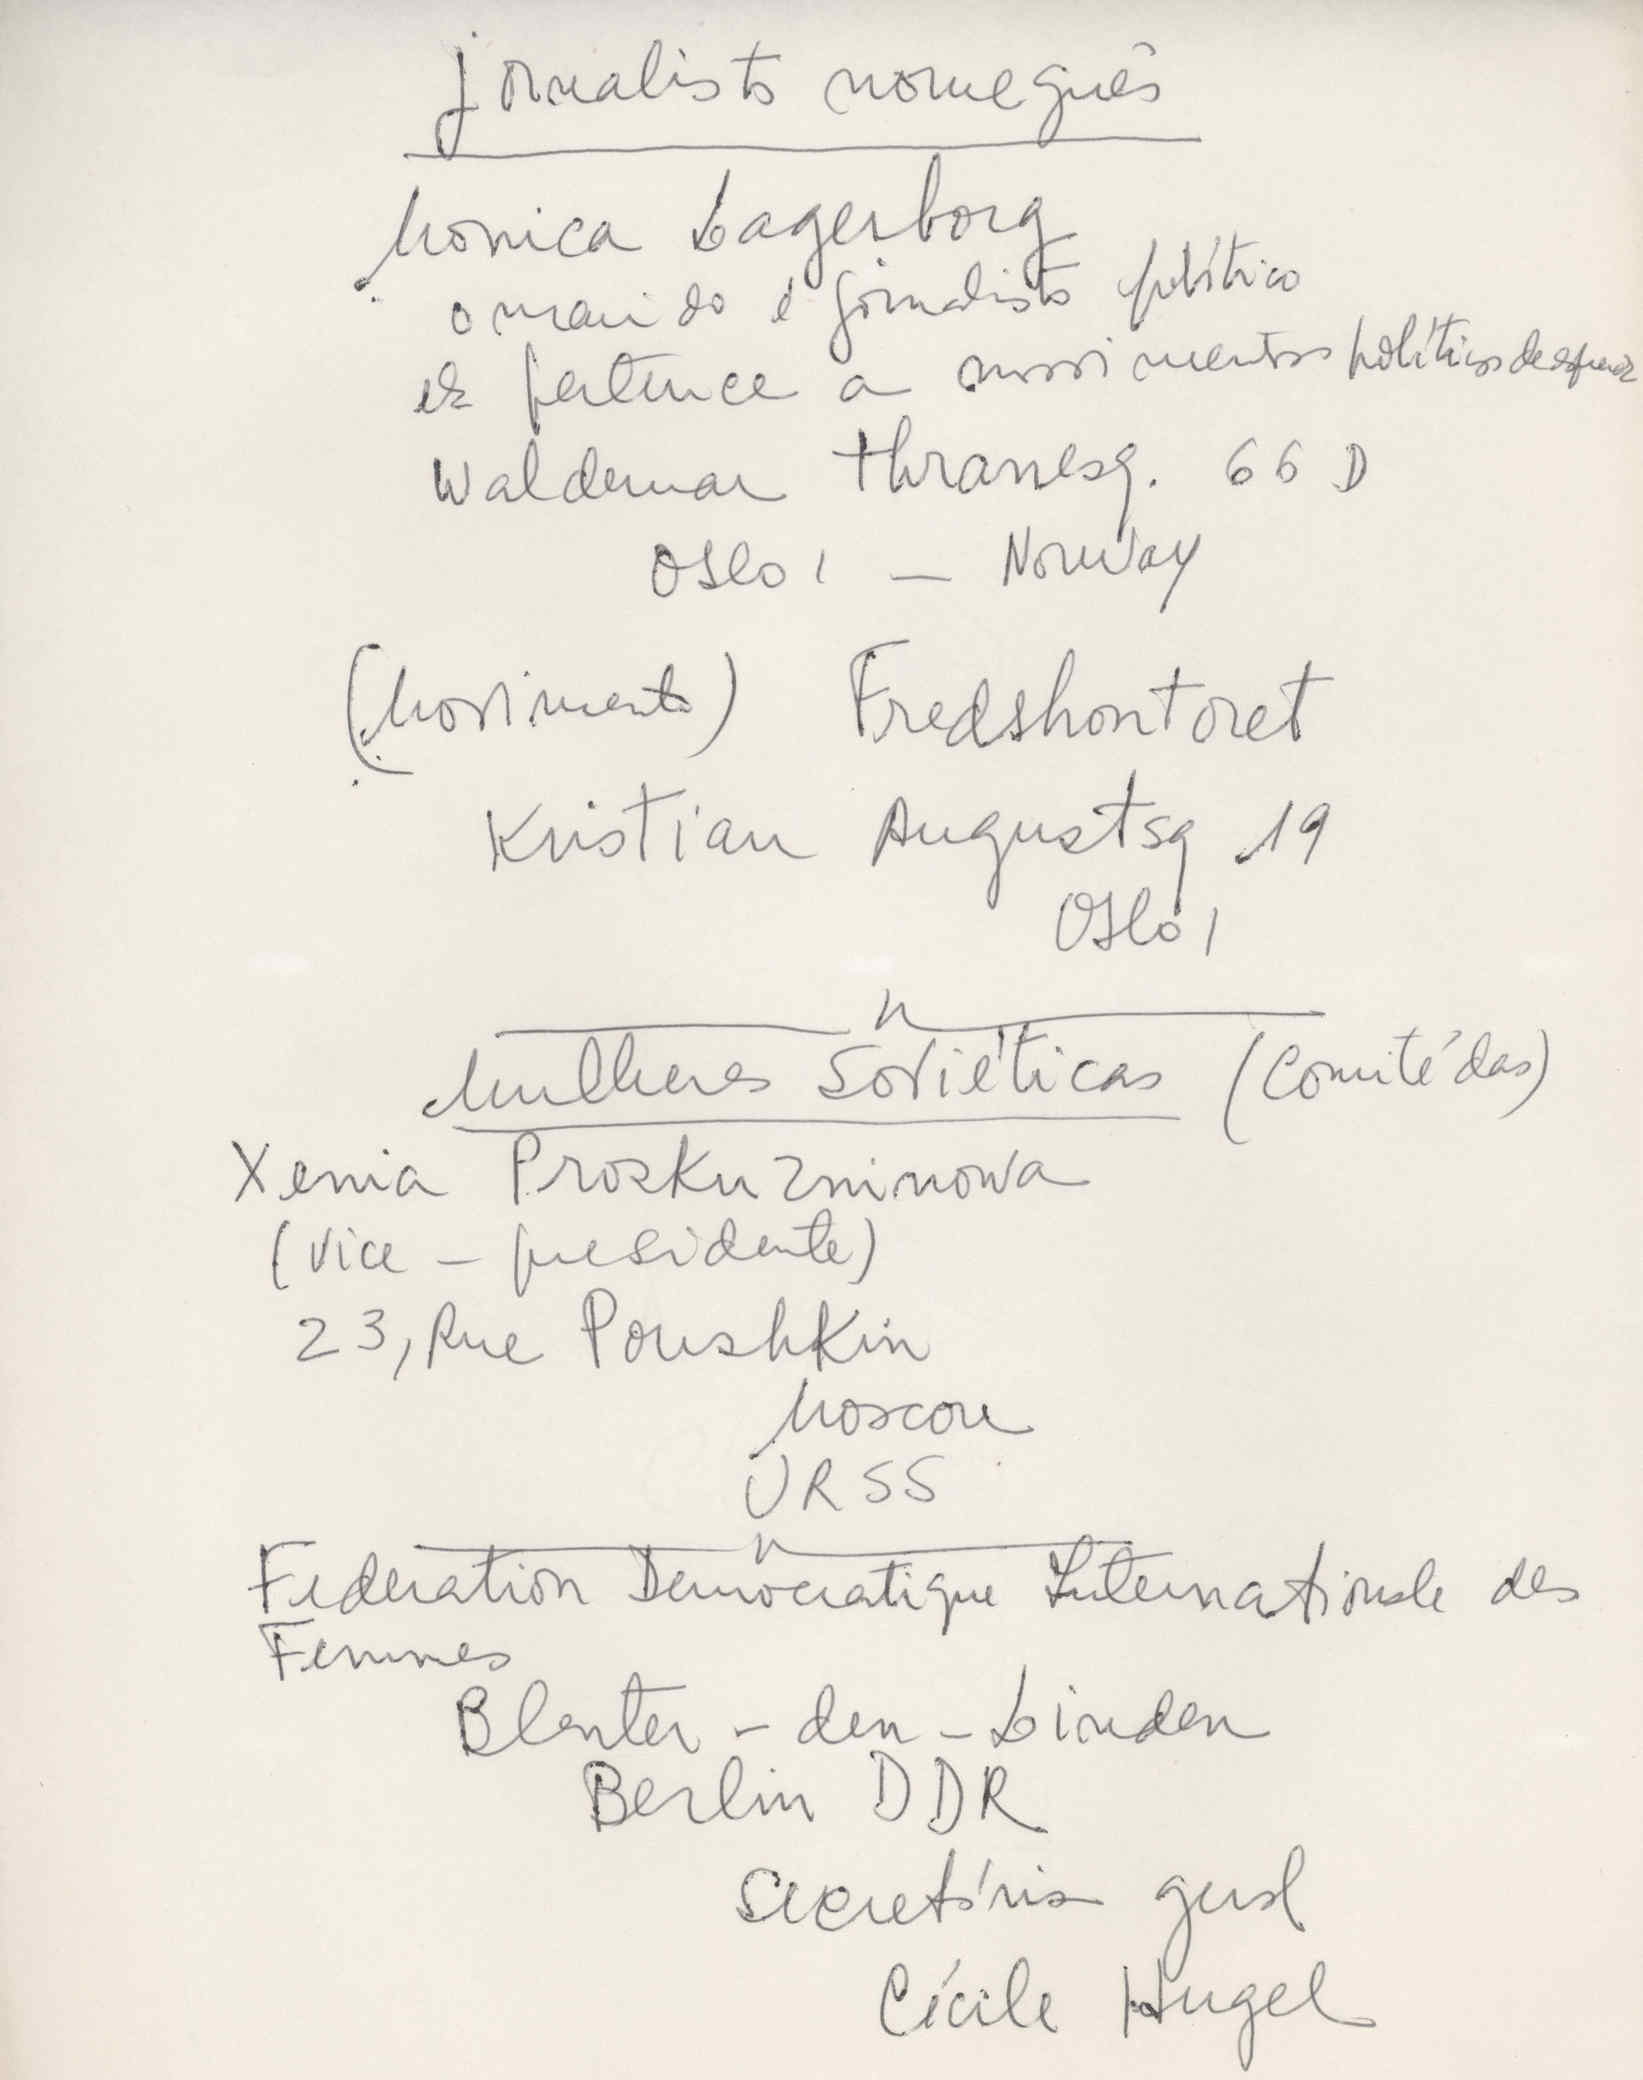 Jornalista norueguês
Monica Lagerborg
o marido é jornalista político
ela pertence a movimentos políticos de esquerda
Waldemar Thranesg. 66 D
Oslo 1 — Norway
(Movimento) Fredskontoret
Kristian Augustsg 19
Oslo 1
Mulheres Soviéticas (Comité das)
Xenia Proskurninowa
(Vice - presidente)
23, Rue Poushkin
Moscou
URSS
Federation Democratique Internationale des
Femmes
Blenter - den - Linden
Berlin DDR
Secretária geral
Cécile Hugel